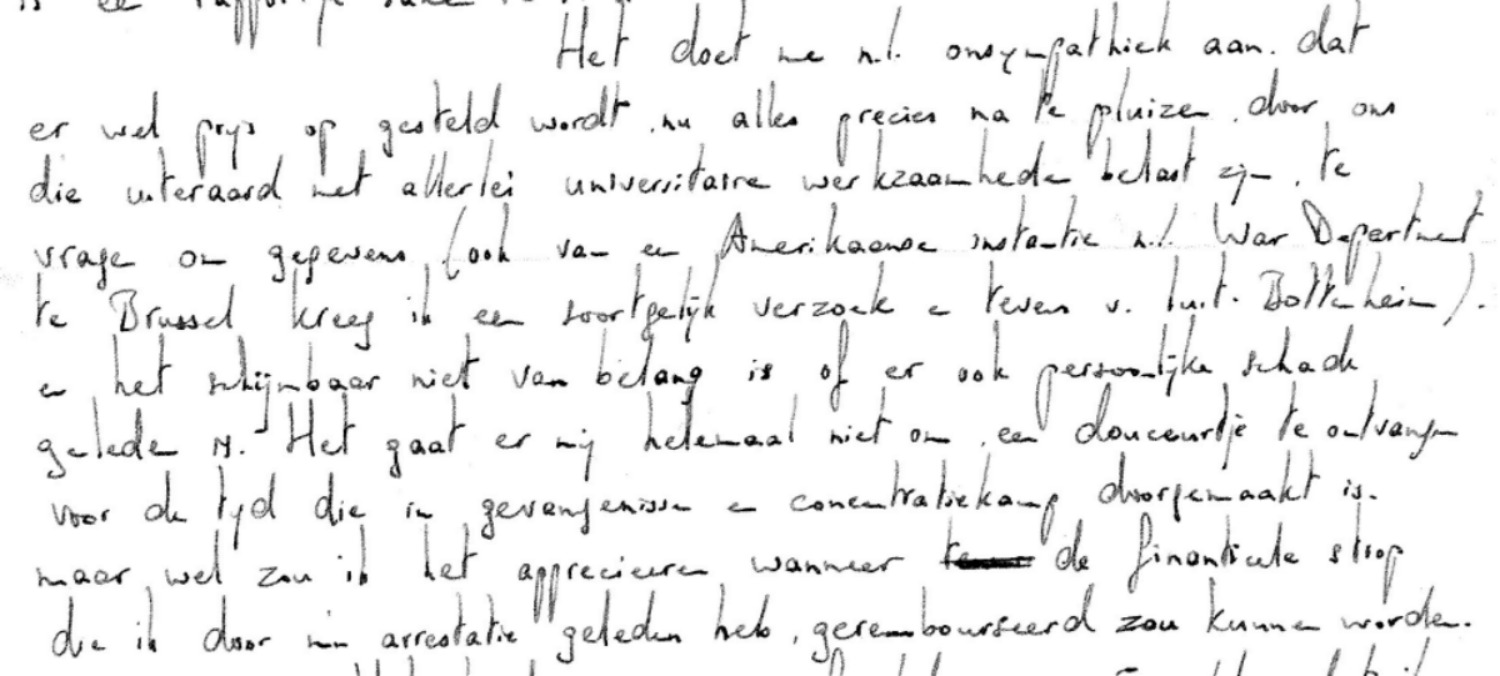 Het doet me n.l. onsympathiek aan. dat
er wel prijs op gesteld wordt, nu alles precies na te pluizen, door ons
die uiteraard met allerlei universitaire werkzaamheden belast zijn, te
vragen om gegevens (ook van een Amerikaanse instantie n.l. War Department
te Brussel kreeg ik een soortgelijk verzoek en tevens v. luit. Bottenheim).
en het schijnbaar niet van belang is of er ook persoonlijke schade
geleden is. Het gaat er mij helemaal niet om, een douceurtje te ontvangen
voor de tijd die in gevangenissen en concentratiekamp doorgemaakt is.
maar wel zou ik het apprecieeren wanneer de financieele strop
die ik door mijn arrestatie geleden heb, gerembourseerd zou kunnen worden.